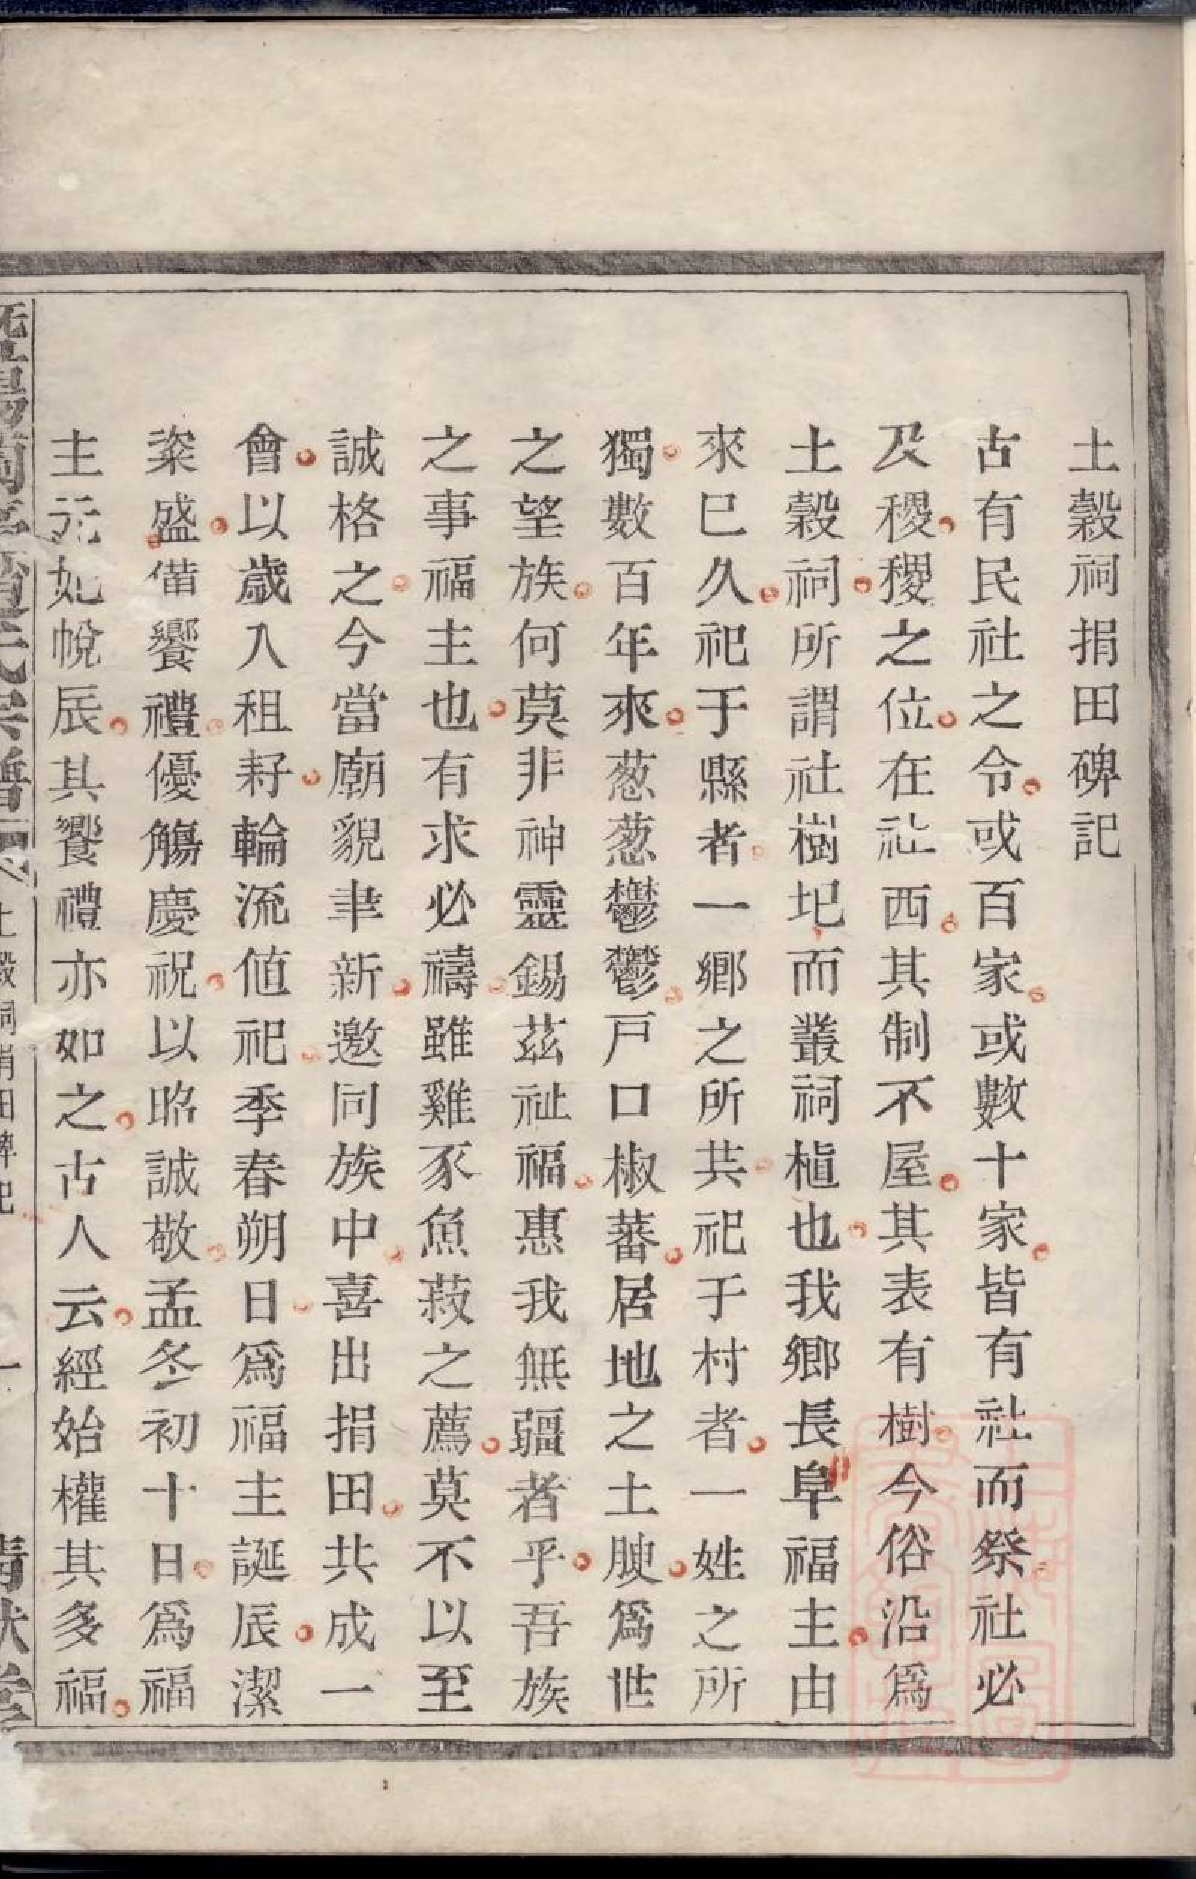 土穀祠捐田碑記
古有民社之令或百家或數十家皆有社而祭社必
及稷稷之位在社西其制不屋其表有樹今俗沿爲
土穀祠所謂社樹圯而叢祠植也我鄉長阜福主由
來巳久祀于縣者一鄉之所共祀于村者一姓之所
獨數百年來葱葱鬱鬱戸口椒蕃居地之土腴爲世
之望族何莫非神靈錫茲祉福惠我無疆者乎吾族
之事福主也有求必禱雖雞豕魚菽之薦莫不以至
誠格之今當廟貌聿新邀同族中喜出捐田共成一
會以歲入租耔輪流値祀季春朔日爲福主誕辰潔
粢盛僃饗禮優觴慶祝以昭誠敬孟冬初十日爲福
主元妃帨辰其饗禮亦如之古人云經始權其多福
土穀祠捐田碑記
一